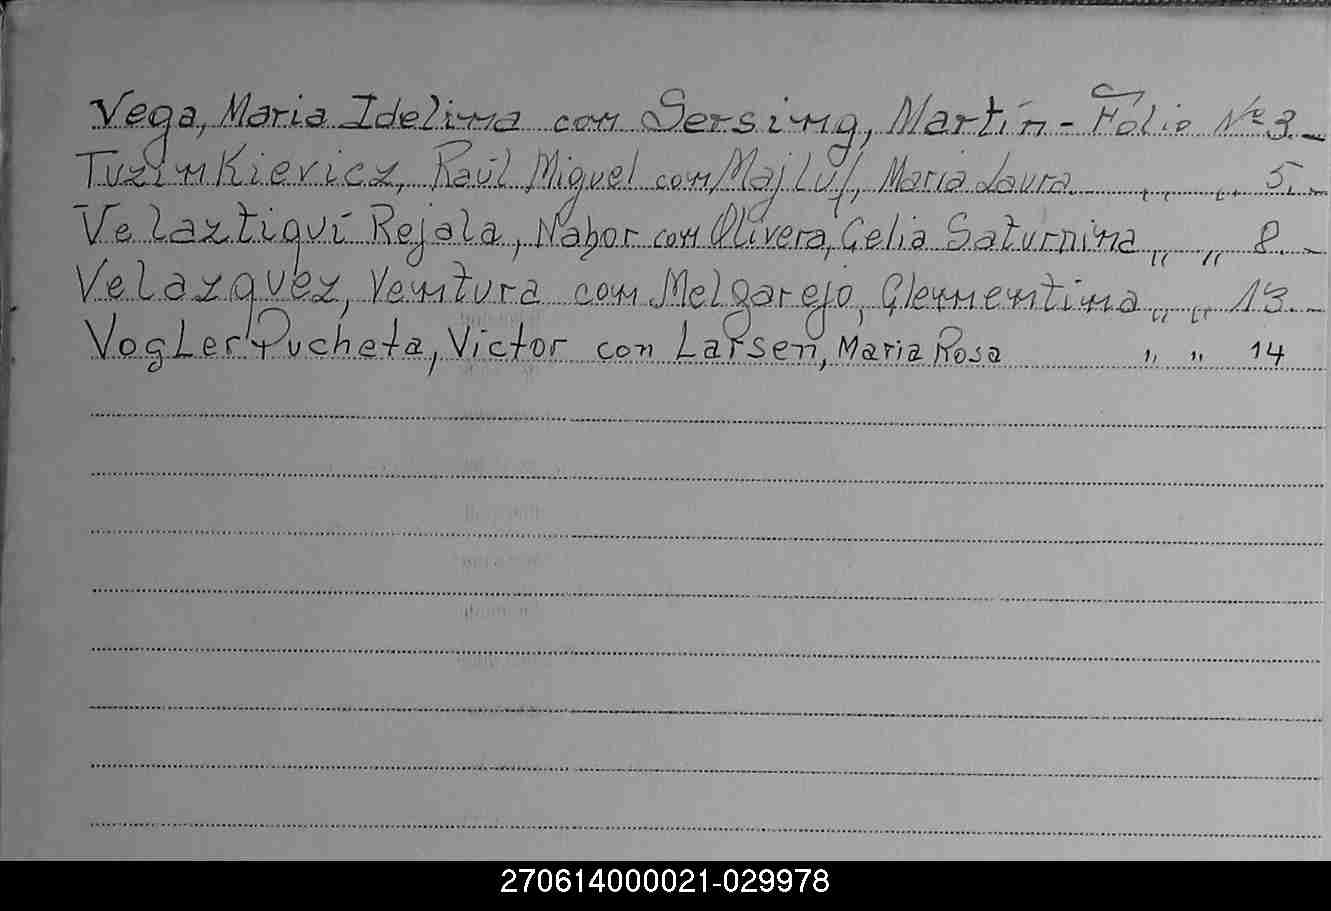 Vega, Maria Idelina con Sersing, Martín - Folio Nº 3.-
Tuzinkievicz, Raúl Miguel con Majluf, Maria Laura " " 5.-
Velaztiquí Rejala, Nabor con Olivera, Celia Saturnina " " 8.-
Velazquez, Ventura con Melgarejo, Clementina " " 13.-
Vogler Pucheta, Victor con Larsen, Maria Rosa " " 14
270614000021-029978